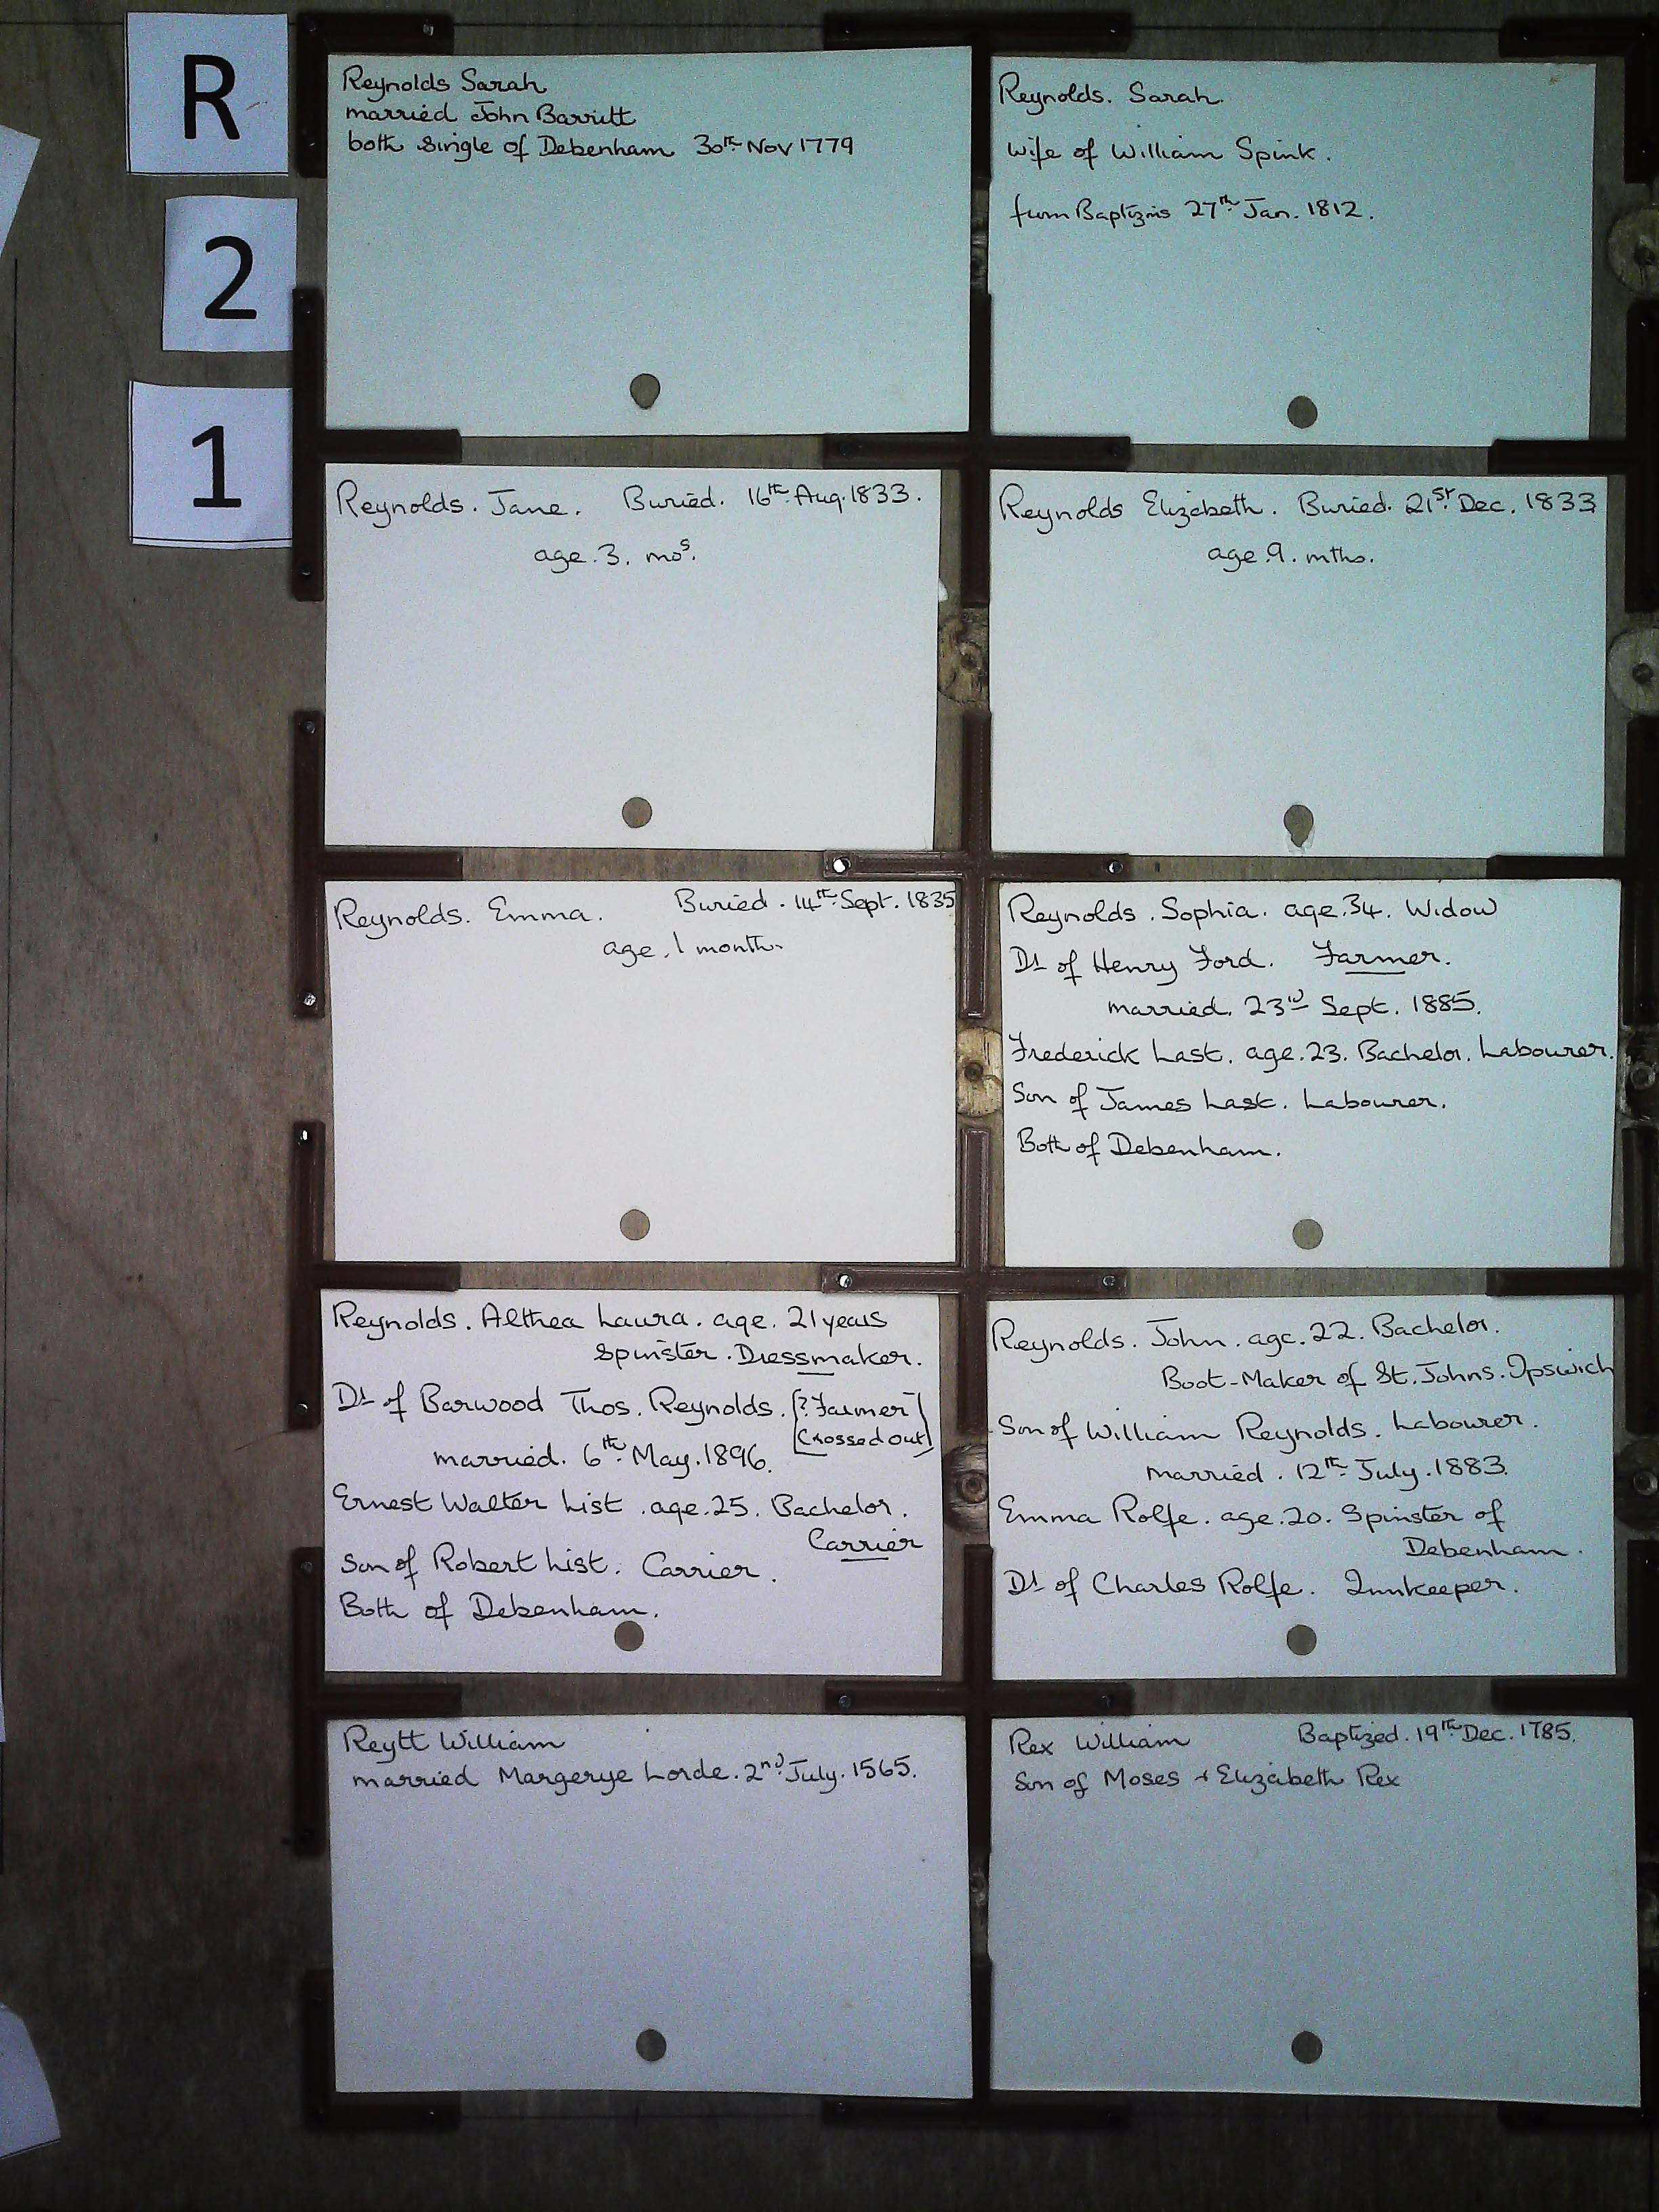 R
2
1
Reynolds Sarah
married John Barritt
both single of Debenham 30th Nov 1779
Reynolds. Sarah.
wife of William Spink.
from Baptizms 27th Jan. 1812.
Reynolds. Jane. Buried. 16th Aug. 1833.
age. 3. mos.
Reynolds Elizabeth. Buried. 21st Dec. 1833
age. 9. mths.
Reynolds. Emma. Buried. 14th Sept. 1835
age. 1 month.
Reynolds. Sophia. age. 34. Widow
Dt of Henry Ford. Farmer.
married. 23rd Sept. 1885.
Frederick Last. age. 23. Bachelor. Labourer.
Son of James Last. Labourer.
Both of Debenham.
Reynolds. Althea Laura. age. 21 years
Spinster. Dressmaker.
Dt of Barwood Thos. Reynolds. [? Farmer
Crossed out]
married. 6th May. 1896.
Ernest Walter List. age. 25. Bachelor.
Carrier
Son of Robert List. Carrier.
Both of Debenham.
Reynolds. John. age. 22. Bachelor.
Boot-Maker of St. Johns. Ipswich
Son of William Reynolds. Labourer.
married. 12th July. 1883.
Emma Rolfe. age. 20. Spinster of
Debenham.
Dt of Charles Rolfe. Innkeeper.
Reytt William
married Margerye Lorde. 2nd July. 1565.
Rex William Baptized. 19th Dec. 1785.
Son of Moses + Elizabeth Rex